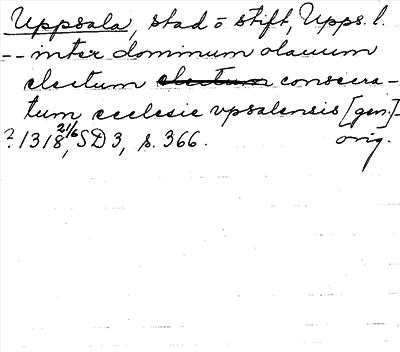 Uppsala, stad o stift, Upps. l.
-- inter dominum olauum
electum electum consecra-
tum ecclesie vpsalensis [gen.]-
? 1318 21/6, SD 3, s. 366. orig.